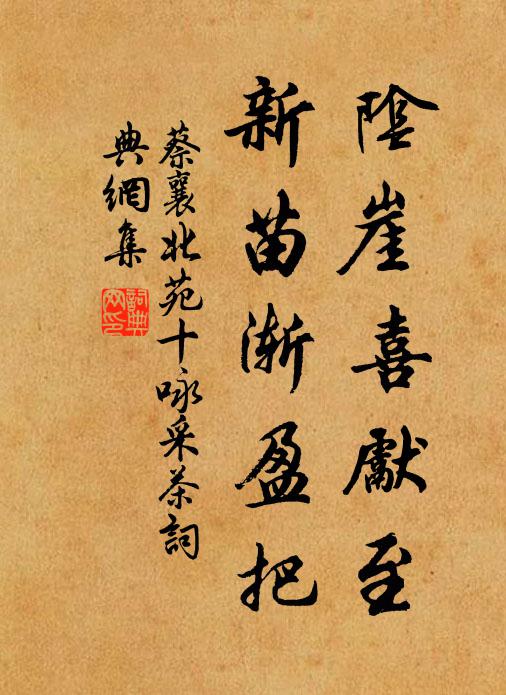 陰崖喜獻至
新苗渐盈把
蔡襄北苑十咏采茶詞
典網集
詞典網印